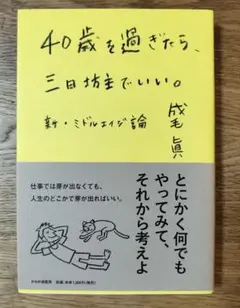 40歳を過ぎたら、
三日坊主でいい。
新・ミドルエイジ論
成毛眞
とにかく何でも
やってみて、
それから考えよ
仕事では芽が出なくても、
人生のどこかで芽が出ればいい。